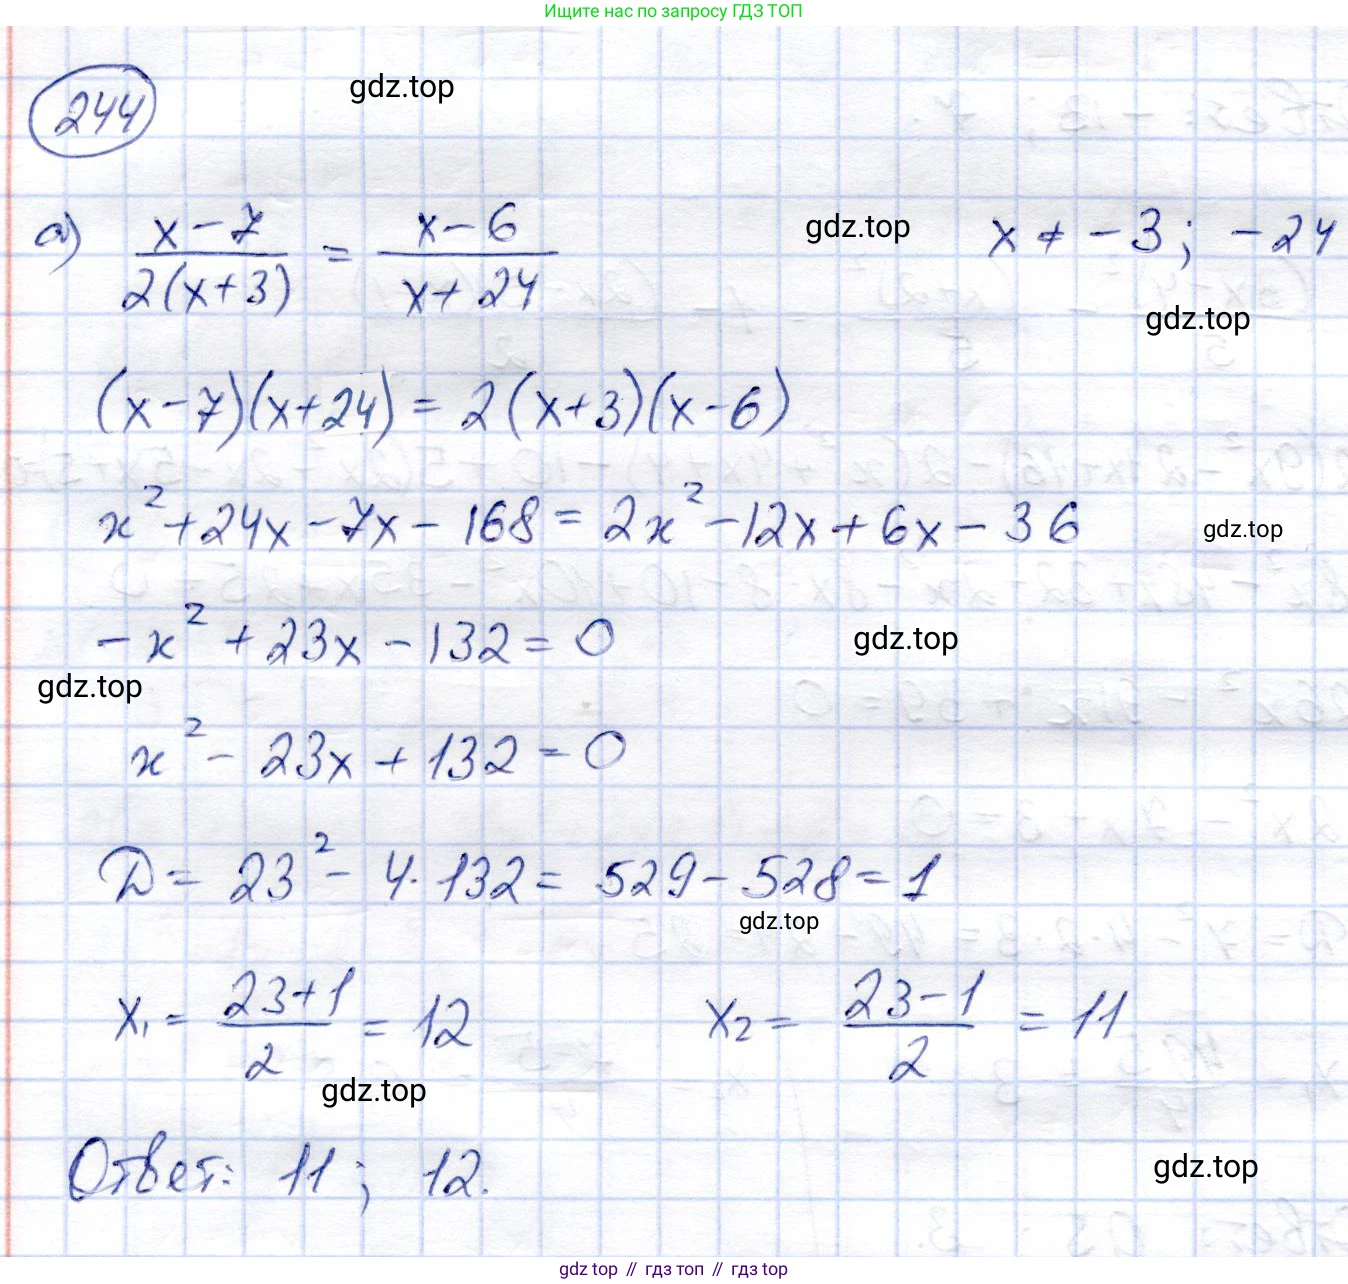 Ищите нас по запросу ГДЗ ТОП
244
gdz.top
а) (x-7)/(2(x+3)) = (x-6)/(x+24)
gdz.top
x ≠ -3; -24
gdz.top
(x-7)(x+24) = 2(x+3)(x-6)
x² + 24x - 7x - 168 = 2x² - 12x + 6x - 36
gdz.top
-x² + 23x - 132 = 0
gdz.top
gdz.top
x² - 23x + 132 = 0
D = 23² - 4·132 = 529 - 528 = 1
gdz.top
x₁ = (23+1)/2 = 12
x₂ = (23-1)/2 = 11
gdz.top
Ответ: 11; 12.
gdz.top
gdz top // гдз топ // гдз top